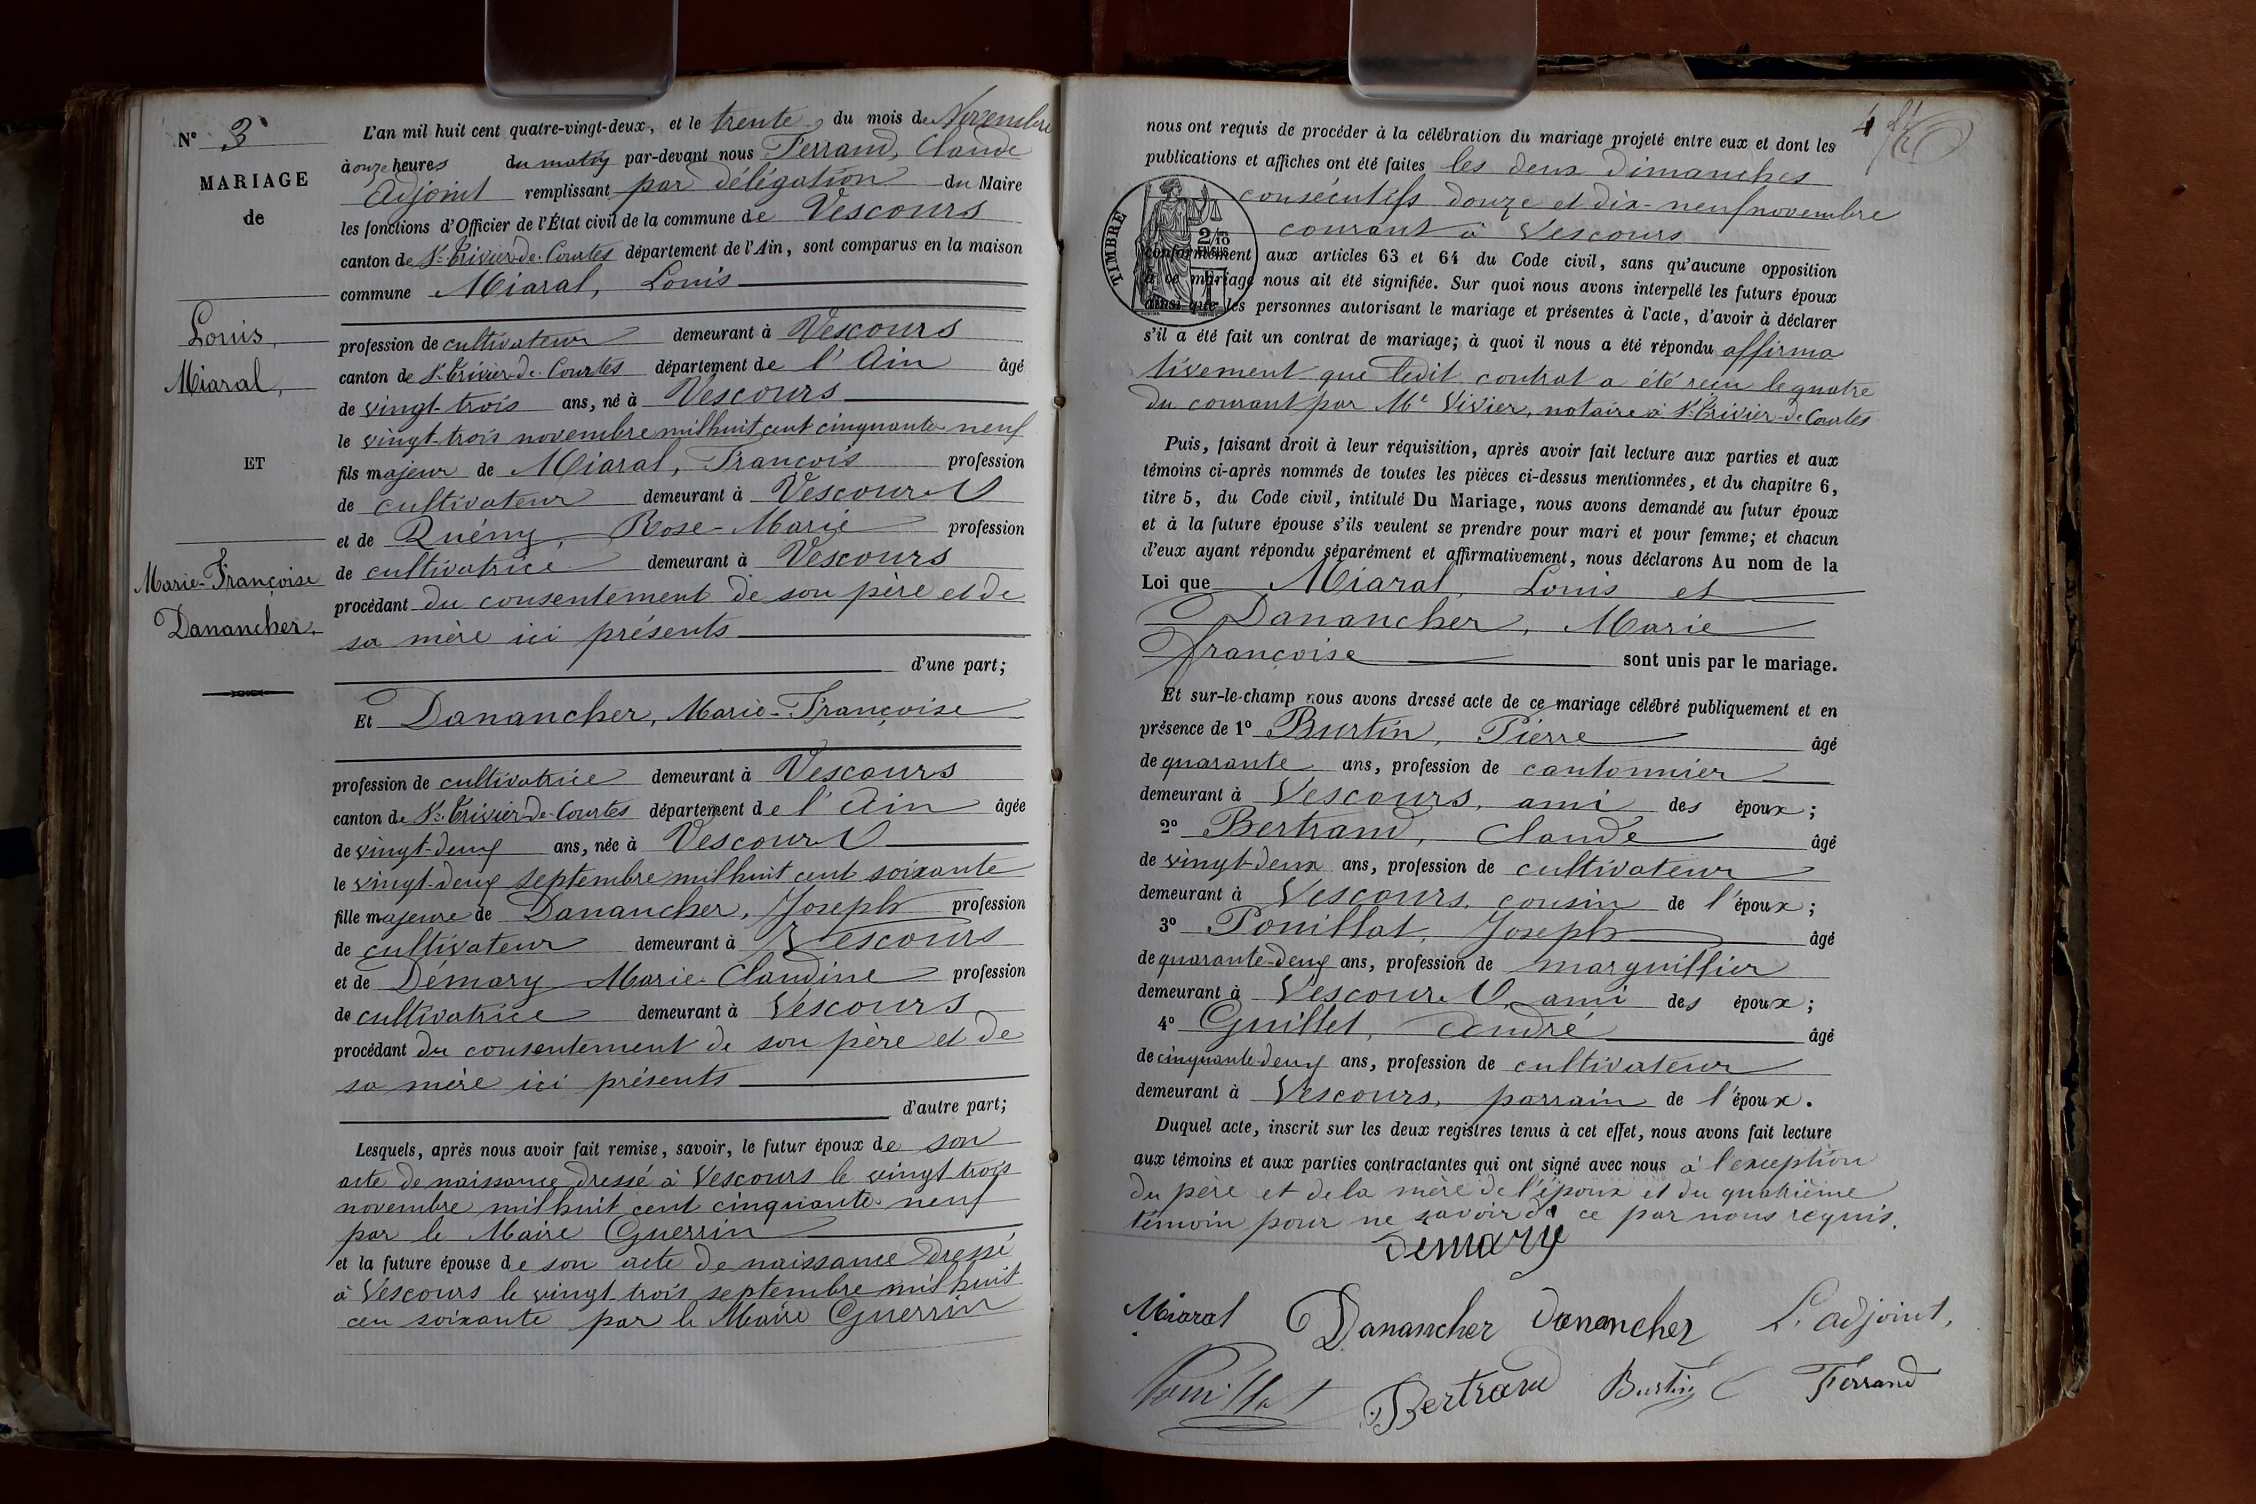 N° 3
MARIAGE
de
Louis
Miaral,
ET
Marie-Françoise
Danancher.
L'an mil huit cent quatre-vingt-deux, et le trente du mois de Novembre
à onze heures du matin par-devant nous Ferrand, Claude
Adjoint remplissant par délégation du Maire
les fonctions d'Officier de l'État civil de la commune de Vescours
canton de St-Trivier-de-Courtes département de l'Ain, sont comparus en la maison
commune Miaral, Louis
profession de cultivateur demeurant à Vescours
canton de St-Trivier-de-Courtes département de l'Ain âgé
de vingt-trois ans, né à Vescours
le vingt-trois novembre mil huit cent cinquante-neuf
fils majeur de Miaral, François profession
de cultivateur demeurant à Vescours
et de Quémy, Rose-Marie profession
de cultivatrice demeurant à Vescours
procédant du consentement de son père et de
sa mère ici présents
d'une part;
Et Danancher, Marie-Françoise
profession de cultivatrice demeurant à Vescours
canton de St-Trivier-de-Courtes département de l'Ain âgée
de vingt-deux ans, née à Vescours
le vingt-deux septembre mil huit cent soixante
fille majeure de Danancher, Joseph profession
de cultivateur demeurant à Vescours
et de Démary Marie-Claudine profession
de cultivatrice demeurant à Vescours
procédant du consentement de son père et de
sa mère ici présents
d'autre part;
Lesquels, après nous avoir fait remise, savoir, le futur époux de son
acte de naissance dressé à Vescours le vingt trois
novembre mil huit cent cinquante-neuf
par le Maire Guerrin
et la future épouse de son acte de naissance dressé
à Vescours le vingt trois septembre mil huit
cen soixante par le Maire Guerrin
4
nous ont requis de procéder à la célébration du mariage projeté entre eux et dont les
publications et affiches ont été faites les deux dimanches
consécutifs douze et dix-neuf novembre
courant à Vescours
TIMBRE
2/10
EN SUS
conformément aux articles 63 et 64 du Code civil, sans qu'aucune opposition
à ce mariage nous ait été signifiée. Sur quoi nous avons interpellé les futurs époux
ainsi que les personnes autorisant le mariage et présentes à l'acte, d'avoir à déclarer
s'il a été fait un contrat de mariage; à quoi il nous a été répondu affirma
tivement que ledit contrat a été reçu le quatre
du courant par Me Vivier, notaire à St-Trivier-de-Courtes
Puis, faisant droit à leur réquisition, après avoir fait lecture aux parties et aux
témoins ci-après nommés de toutes les pièces ci-dessus mentionnées, et du chapitre 6,
titre 5, du Code civil, intitulé Du Mariage, nous avons demandé au futur époux
et à la future épouse s'ils veulent se prendre pour mari et pour femme; et chacun
d'eux ayant répondu séparément et affirmativement, nous déclarons Au nom de la
Loi que Miaral, Louis et
Danancher, Marie
françoise sont unis par le mariage.
Et sur-le-champ nous avons dressé acte de ce mariage célébré publiquement et en
présence de 1° Burtin, Pierre âgé
de quarante ans, profession de cantonnier
demeurant à Vescours, ami des époux;
2° Bertrand, Claude âgé
de vingt-deux ans, profession de cultivateur
demeurant à Vescours, cousin de l'époux;
3° Pouillat, Joseph âgé
de quarante-deux ans, profession de marguillier
demeurant à Vescours, ami des époux;
4° Guillet, André âgé
de cinquante-deux ans, profession de cultivateur
demeurant à Vescours, parrain de l'époux.
Duquel acte, inscrit sur les deux registres tenus à cet effet, nous avons fait lecture
aux témoins et aux parties contractantes qui ont signé avec nous à l'exception
du père et de la mère de l'époux et du quatrième
témoin pour ne savoir de ce par nous requis.
demary
Miaral Danancher danancher L'adjoint,
Pouillat Bertrand Burtin Ferrand